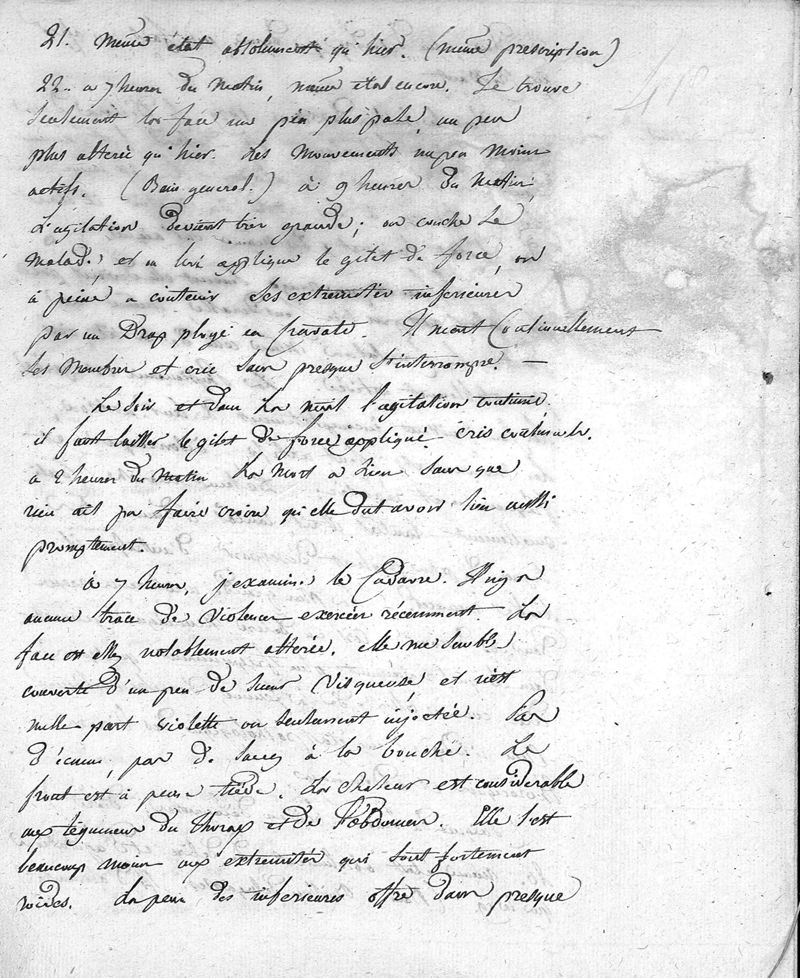 21. Même état absolument qu'hier. (même prescription)
22. à 7 heures du matin, même état encore. Je trouve
seulement la face un peu plus pale, un peu
plus alterée qu'hier. les mouvements un peu moins
actifs. (Bain general.) à 9 heures du matin,
L'agitation devient très grande; on couche le
malade, et on lui applique le gilet de force, on
à peine a contenir ses extremités inferieures
par un Drap ployé en Cravate. Il meut Continuellement
ses membres et crie sans presque s'interrompre. —
Le soir et dans la nuit l'agitation continue,
il faut laisser le gilet de force appliqué. cris continuels.
a 2 heures du matin La mort a lieu sans que
rien ait pu faire croire qu'elle dut avoir lieu aussi
promptement.
à 7 heures, j'examine le Cadavre. Il n'y a
aucune trace de violences exercées récemment. La
face est notablement alterée. elle me semble
couverte d'un peu de sueur visqueuse et n'est
nulle part violette ou seulement injectée. Pas
d'écume, pas de sang à la bouche. Le
front est à peine tiède. La chaleur est considerable
aux tégumens du thorax et de l'abdomen. Elle l'est
beaucoup moins aux extremités qui sont fortement
roides. La peau des inferieures offre dans presque